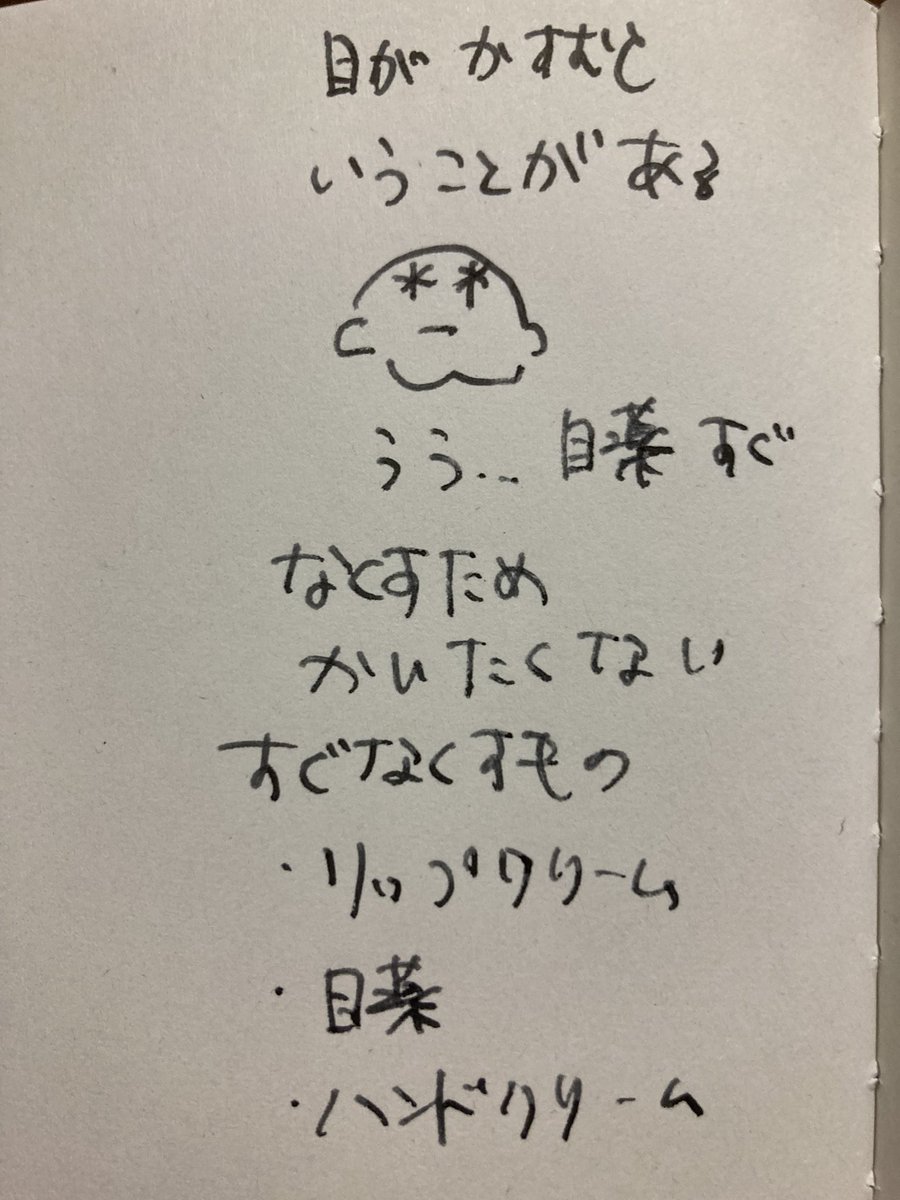 目が かすむと
いうことが ある
うう… 目薬 すぐ
なくすため
かいたくてない
すぐなくすもの
・リップクリーム
・目薬
・ハンドクリーム